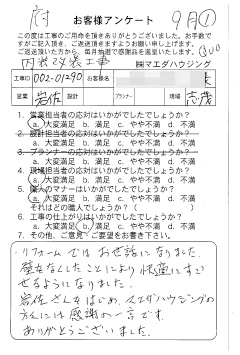 府
お客様アンケート
9月①
この度は工事のご用命を頂きありがとうございました。お手数で
すがご記入頂き、ご返送頂きますようお願い申し上げます。
ご返送頂いた方から、毎月抽選で感謝品を進呈いたします。
内装改装工事
㈱マエダハウジング
工事ID 002-01290 お客様名 k
営業 岩佐 設計 プランナー 現場 志茂
1. 営業担当者の応対はいかがでしたでしょうか?
a. 大変満足 b. 満足 c. やや不満 d. 不満
2. 設計担当者の応対はいかがでしたでしょうか?
a. 大変満足 b. 満足 c. やや不満 d. 不満
3. プランナーの応対はいかがでしたでしょうか?
a. 大変満足 b. 満足 c. やや不満 d. 不満
4. 現場担当者の応対はいかがでしたでしょうか?
a. 大変満足 b. 満足 c. やや不満 d. 不満
5. 職人のマナーはいかがでしたでしょうか?
a. 大変満足 b. 満足 c. やや不満 d. 不満
それはどの職人でしょうか? ( )
6. 工事の仕上がりはいかがでしたでしょうか?
a. 大変満足 b. 満足 c. やや不満 d. 不満
7. その他、ご意見・ご要望をお書き下さい。
リフォームではお世話になりました。
壁をなくしたことにより快適にすご
せるようになりました。
岩佐さんをはじめ、マエダハウジングの
方々には感謝の一言です。
ありがとうございました。